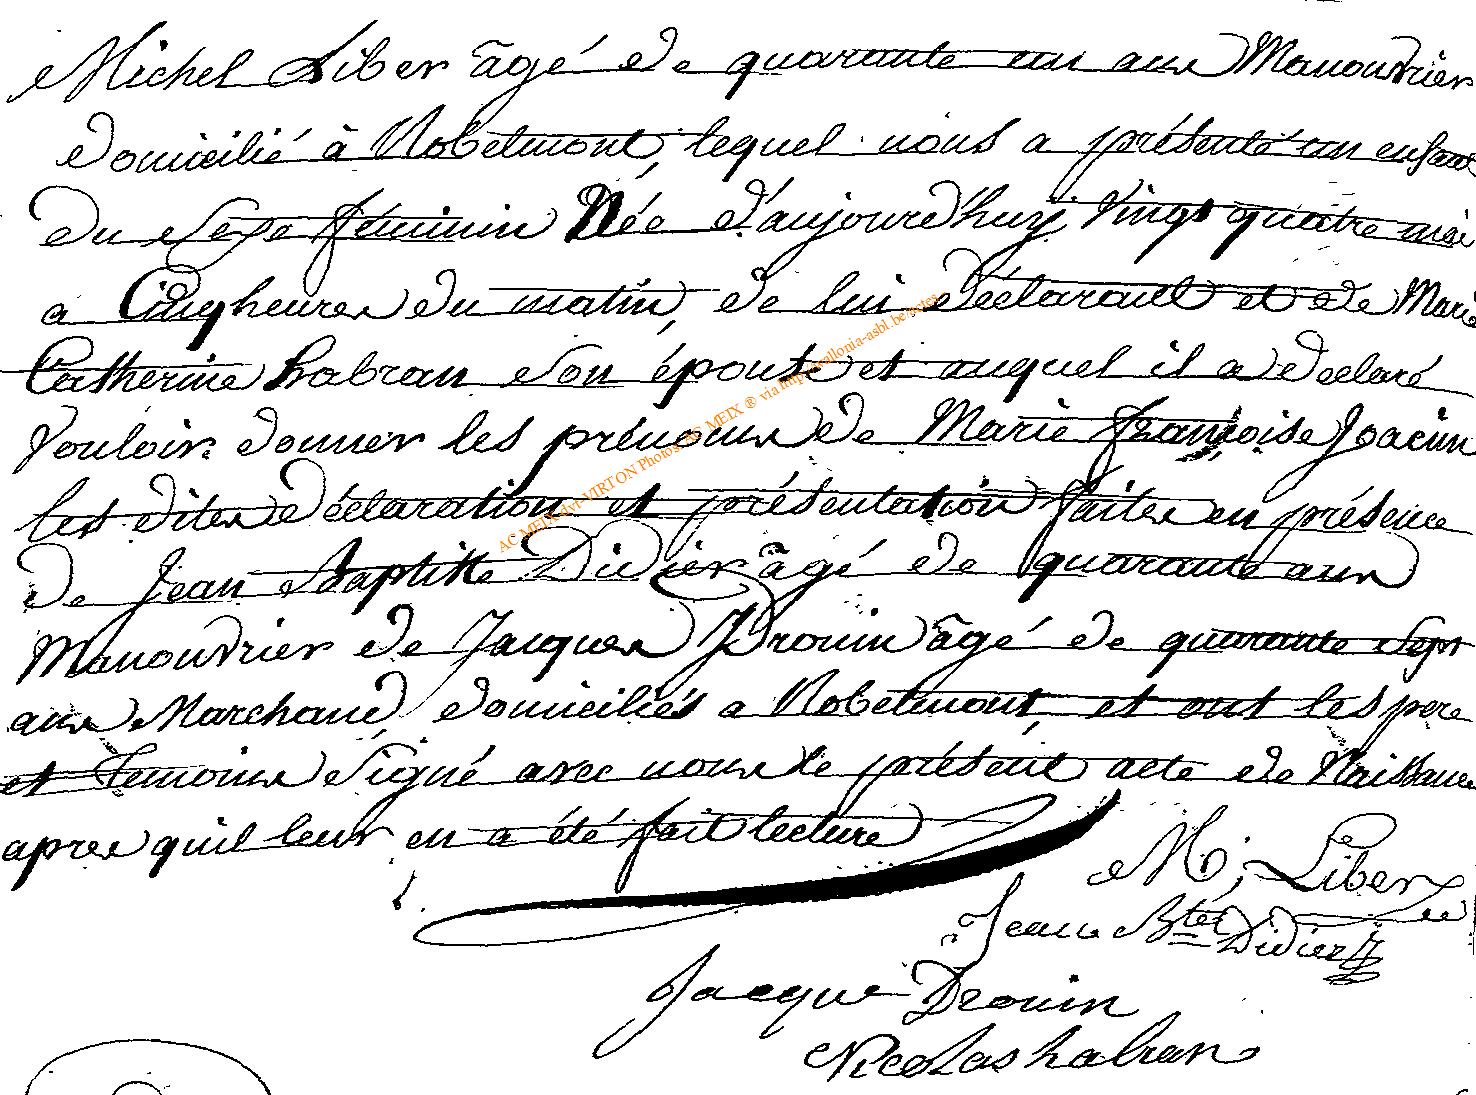 Michel Liber âgé de quarante un ans Manouvrier
domicilié à Robelmont, lequel nous a présenté un enfant
du sexe féminin Née d'aujourd'huy vingt quatre mai
a Cinq heures du matin, de lui déclarant et de Marie
Catherine habran son épouse et auquel il a declaré
vouloir donner les prénoms de Marie françoise Joacim
les dites déclaration et présentation faites en présence
de Jean Baptiste Didier âgé de quarante ans
Manouvrier de Jacques Drouin âgé de quarante sept
ans Marchand, domiciliés a Robelmont, et ont les pere
et temoins signé avec nous le présent acte de Naissance
apres quil leur en a été fait lecture
M; Liber
Jean Bte Didier
Jacque Drouin
Nicolas habran
AC MEIX-dvt-VIRTON Photos AC MEIX ® via http://wallonia-asbl.be/actes